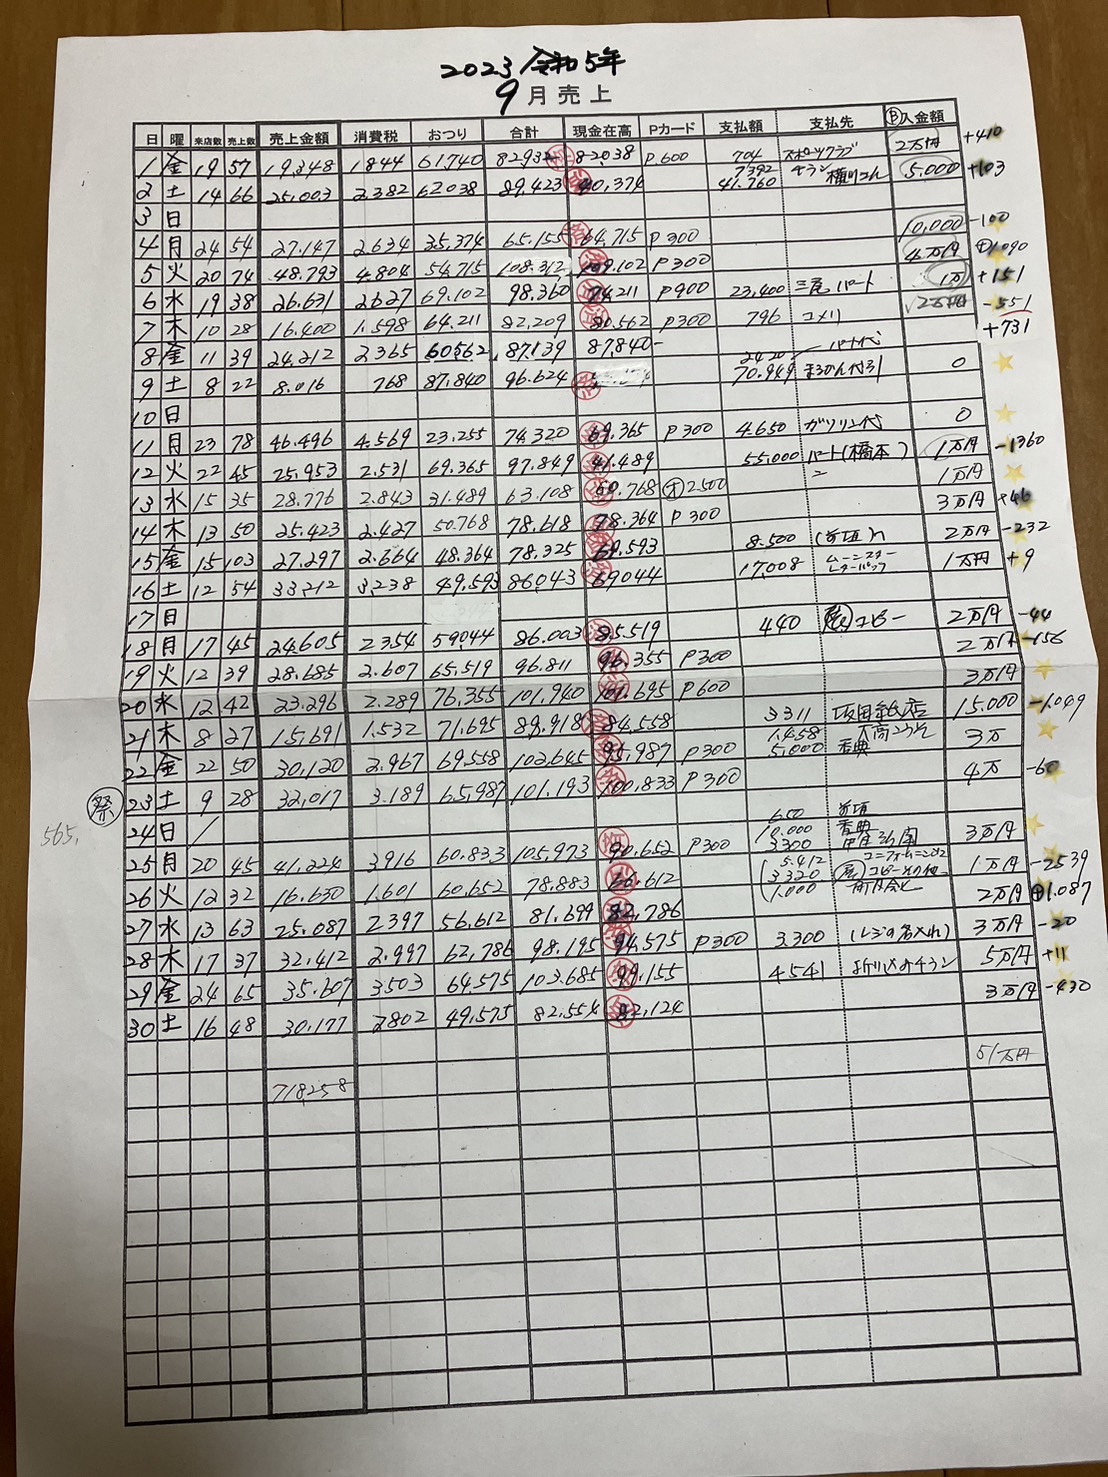 2023 令和5年
9月売上
日 曜 来店数 売上数 売上金額 消費税 おつり 合計 現金在高 Pカード 支払額 支払先 Ⓟ入金額
1 金 19 57 19,348 1844 61.740 82932 82038 P600 704 スポーツクラブ 2万円 +410
7392 チラシ
2 土 14 66 25,003 2.382 62038 89,423 40,374 41.760 5,000 +103
3 日
4 月 24 54 27.147 2.634 35,374 65.155 64,715 P300 10,000 -100
5 火 20 74 48.793 4.804 54,715 108.312 109.102 P300 4万円 ⊕1090
6 水 19 38 26.631 2627 69.102 98.360 74211 P900 23,400 パート 1万 +151
7 木 10 28 16.400 1.598 64.211 82,209 80.562 P300 796 コメリ 2万円 -551
8 金 11 39 24,212 2365 60562 87,139 87,840- +731
パート代
9 土 8 22 8.016 768 87,840 96.624 70.949 0
10 日
11 月 23 78 46.496 4.569 23.255 74320 69.365 P300 4.650 ガソリン代 0
12 火 22 45 25,953 2.531 69.365 97.849 41.489 55,000 パート(橋本) 1万円 -1360
13 水 15 35 28.776 2.843 31.489 63.108 60.768 2500 1万円
14 木 13 50 25.423 2.427 50.768 78.618 78.364 P300 3万円 +46
15 金 15 103 27,297 2.664 48.364 78.325 69.593 8.500 2万円 -232
16 土 12 54 33,212 3,238 49,593 86043 69044 17,008 1万円 +9
17 日
18 月 17 45 24,605 2354 59044 86.003 85.519 440 コピー 2万円 -44
19 火 12 39 28.685 2.607 65,519 96.811 96.355 P300 2万円 -156
20 水 12 42 23,296 2.289 76,355 101,940 101.695 P600 3万円
21 木 8 27 15,691 1.532 71.695 89,918 84,558 3311 坂田紙店 15.000 -1.049
1.458
22 金 22 50 30,120 2.967 69558 102,645 95,987 P300 5,000 香典 3万
㊗ 23 土 9 28 32,017 3.189 65,987 101.193 100,833 P300 4万 -60
24 日 /
565,
650
10.000 香典
25 月 20 45 41,224 3916 60.833 105,973 90.652 P300 3300 3万円
5.412 ユニフォーム
26 火 12 32 16.630 1.601 60,652 78.883 66.612 3320 コピーその他 1万円 -2539
1.000
27 水 13 63 25.087 2397 56,612 81.699 82,786 2万円 ⊕1.087
28 木 17 37 32.412 2.997 62,786 98.195 94,575 P300 3.300 (レジの名入れ) 3万円 -20
29 金 24 65 35.607 3.503 64,575 103.685 99,155 4541 折り込みチラシ 5万円 +11
30 土 16 48 30,177 2802 49,575 82.554 82,124 3万円 -430
51万円
718,258